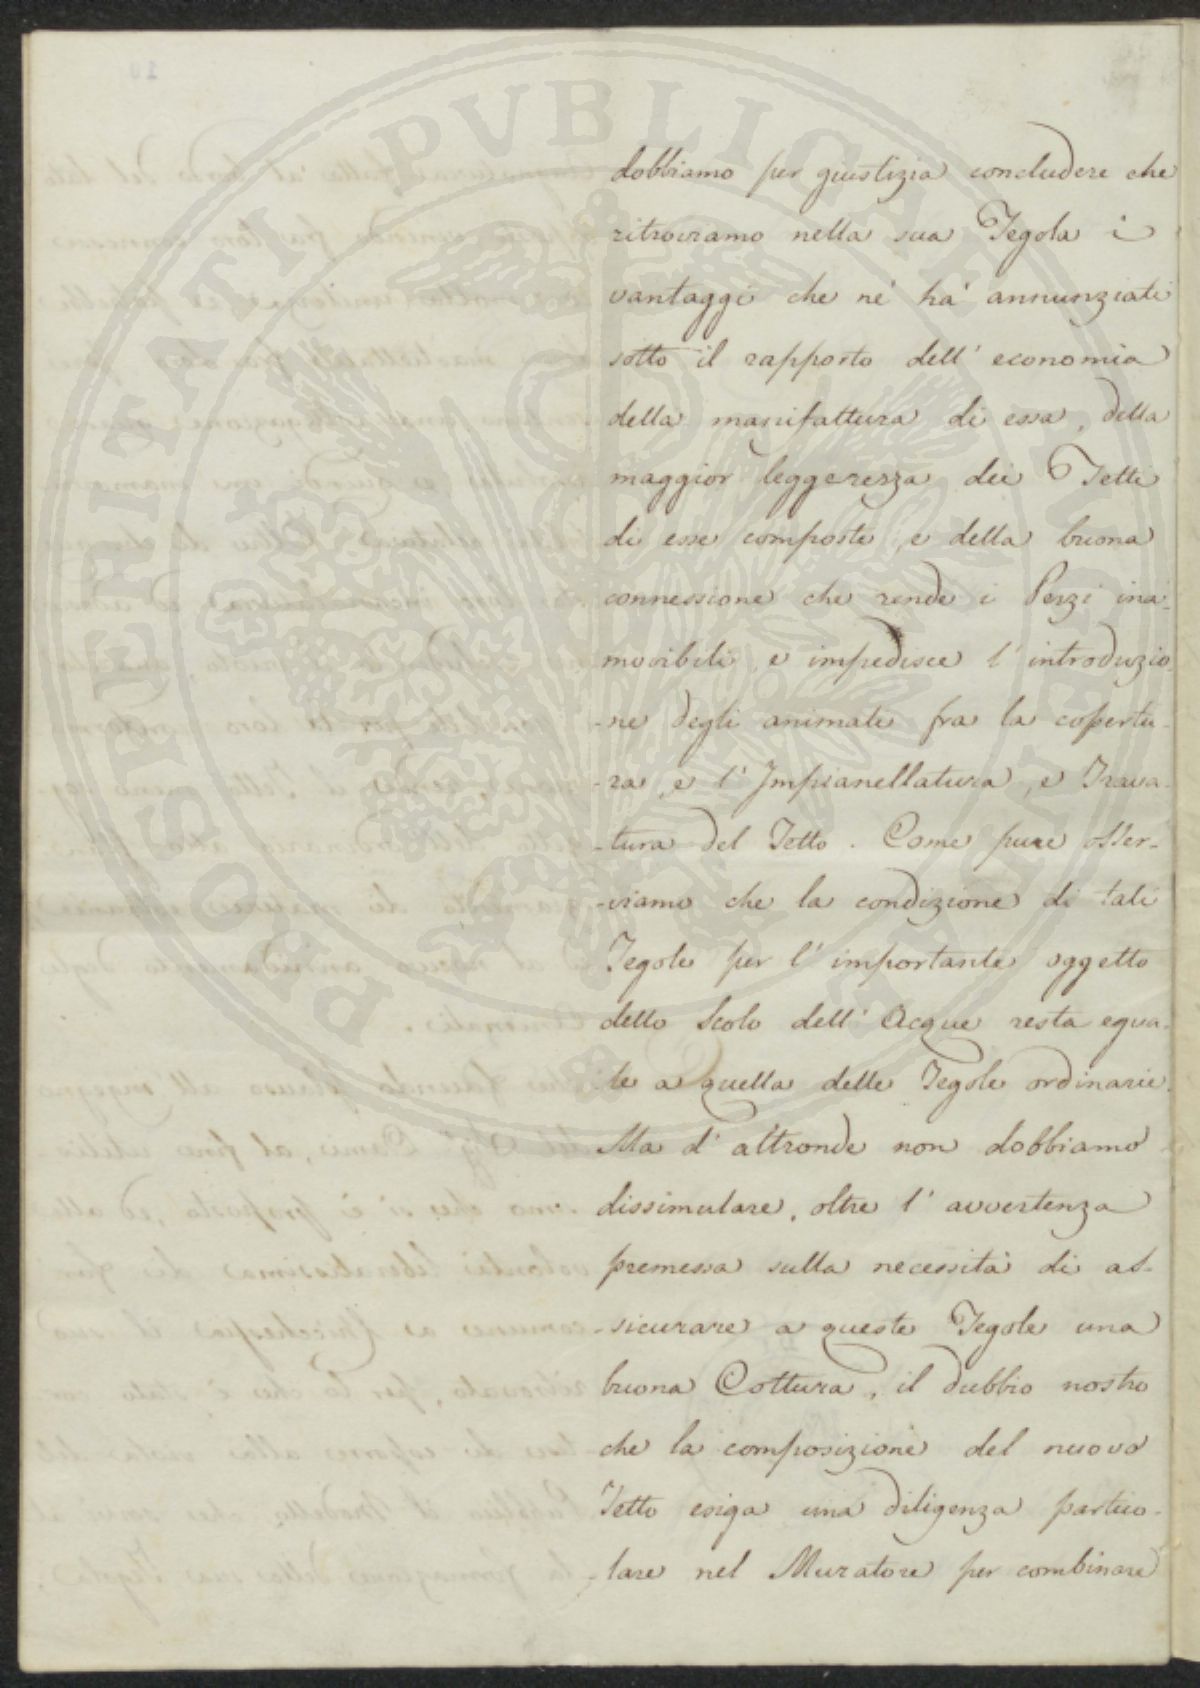 dobbiamo per giustizia concludere che
ritroviamo nella sua Tegola i
vantaggi che ne' ha' annunziati
sotto il rapporto dell' economia
della manifattura di essa, della
maggior leggerezza dei Tetti
di esse composti, e della buona
connessione che rende i Pezzi ina-
movibili, e impedisce l' introduzio-
-ne degli animali fra la copertu-
-ra, e l' Impianellatura, e Trava-
-tura del Tetto. Come pure osser-
-viamo che la condizione di tali
Tegole per l' importante oggetto
dello Scolo dell' Acque resta egua-
-le a quella delle Tegole ordinarie.
Ma d' altronde non dobbiamo
dissimulare, oltre l' avvertenza
premessa sulla necessità di as-
-sicurare a queste Tegole una
buona Cottura, il dubbio nostro
che la composizione del nuovo
Tetto esiga una diligenza partico-
-lare nel Muratore per combinare
PROSPERITATI PVBLICAE AVGENDAE